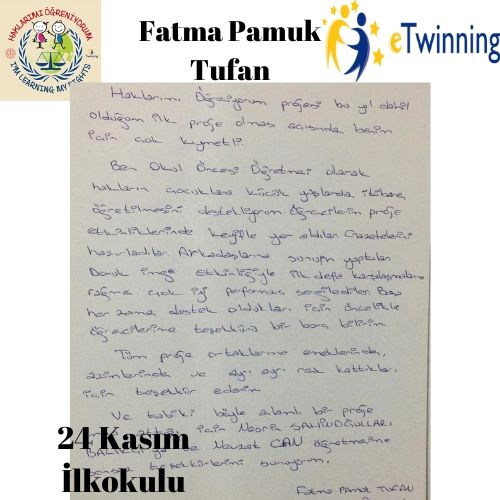 HAKLARIMI ÖĞRENİYORUM
I'M LEARNING MY RIGHTS
Fatma Pamuk
Tufan
eTwinning
Haklarımı Öğreniyorum projesi bu yıl dahil
olduğum ilk proje olması açısından benim
için çok kıymetli.
Ben Okul Öncesi Öğretmeni olarak
hakların çocuklara küçük yaşlarda itibaren
öğretilmesini destekliyorum. Öğrencilerim proje
etkinliklerinde keyifle yer aldılar. Gazetelerini
hazırladılar. Arkadaşlarına sunum yaptılar.
Donuk imge etkinliğiyle ilk defa karşılaşmalarına
rağmen çok iyi performans sergilediler. Bana
her zaman destek oldukları için öncelikle
öğrencilerime teşekkürü bir borç bilirim.
Tüm proje ortaklarıma emeklerinden,
azimlerinden ve ayrı ayrı renk kattıkları
için teşekkür ederim.
Ve tabiki böyle anlamlı bir proje
için Nesrin
BALIKÇI ve Nevzat CAN öğretmenime
sonsuz teşekkürlerimi sunuyorum.
Fatma Pamuk TUFAN
24 Kasım
İlkokulu